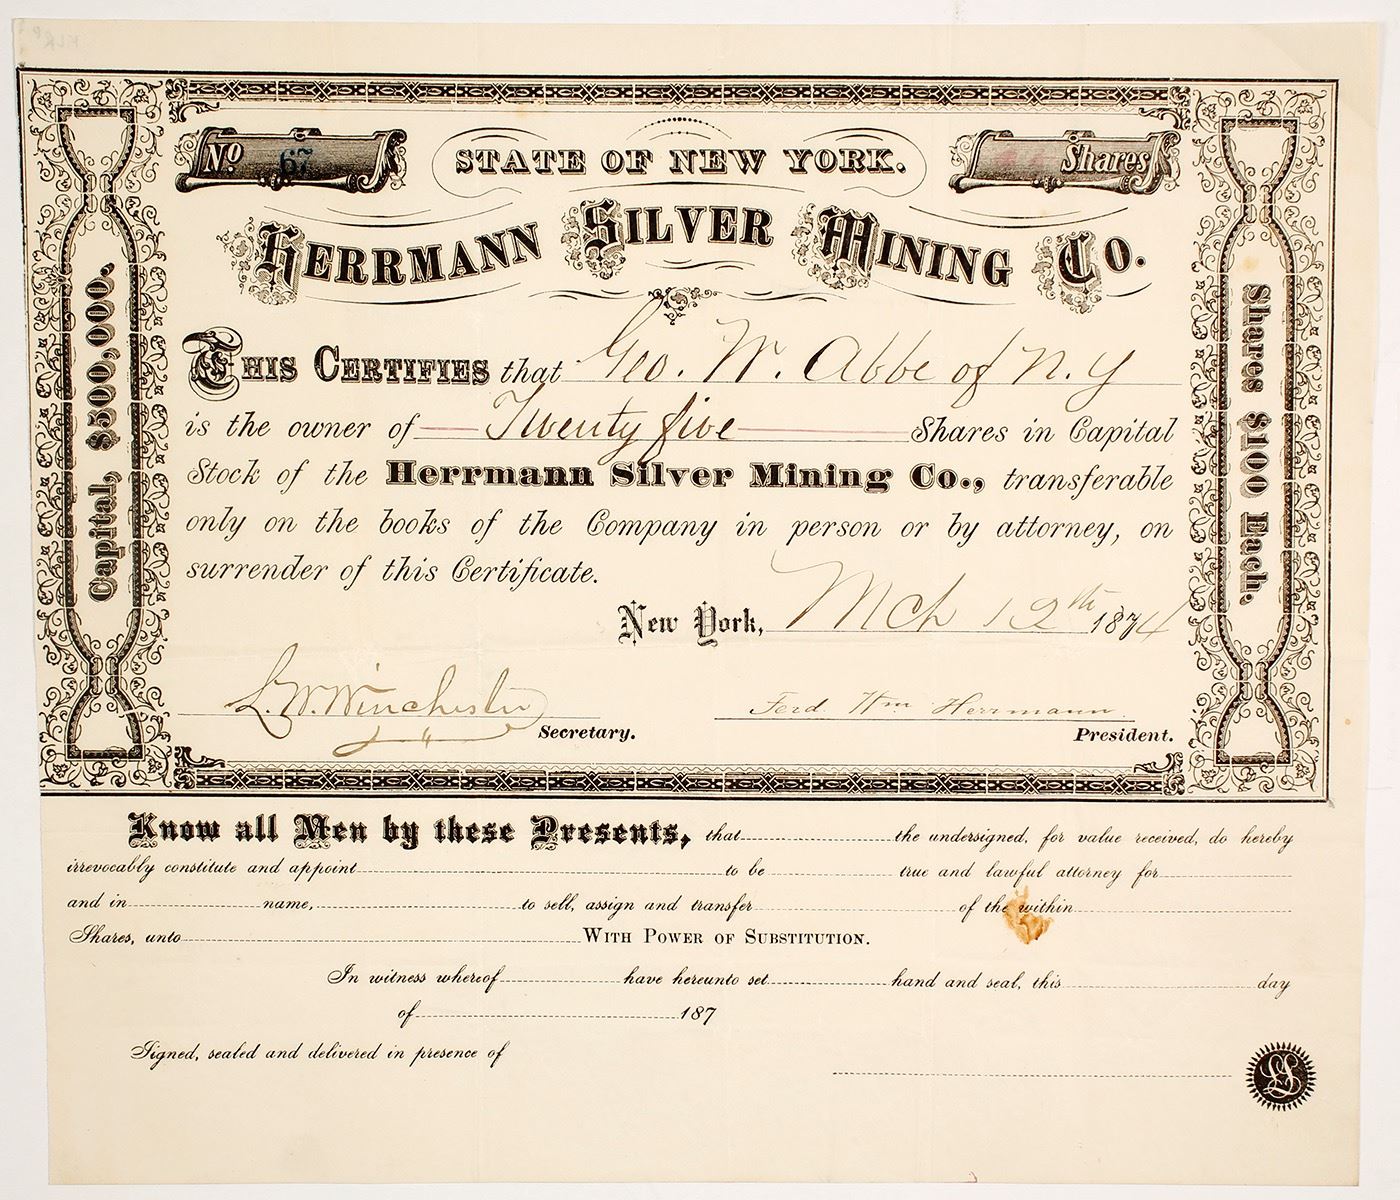 No 67
STATE OF NEW YORK.
Shares
HERRMANN SILVER MINING CO.
Capital, $500,000.
Shares $100 Each.
THIS CERTIFIES that Geo. W. Abbe of N.Y
is the owner of Twenty five Shares in Capital
Stock of the Herrmann Silver Mining Co., transferable
only on the books of the Company in person or by attorney, on
surrender of this Certificate.
New York, Mch 12th 1874
L. W. Winchester Secretary.
Ferd Wm Herrmann President.
Know all Men by these Presents, that the undersigned, for value received, do hereby
irrevocably constitute and appoint to be true and lawful attorney for
and in name, to sell, assign and transfer of the within
Shares, unto WITH POWER OF SUBSTITUTION.
In witness whereof have hereunto set hand and seal, this day
of 187
Signed, sealed and delivered in presence of
LS